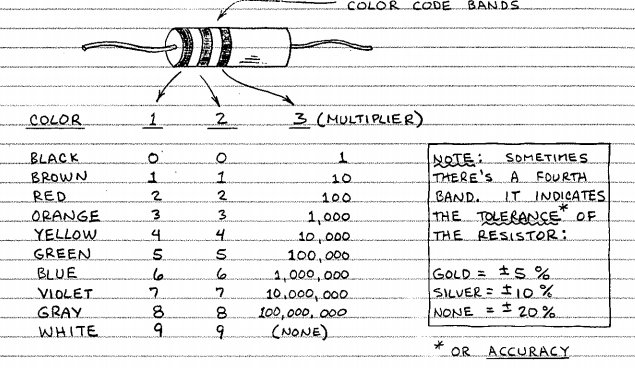 COLOR CODE BANDS
COLOR 1 2 3 (MULTIPLIER)
BLACK 0 0 1
BROWN 1 1 10
RED 2 2 100
ORANGE 3 3 1,000
YELLOW 4 4 10,000
GREEN 5 5 100,000
BLUE 6 6 1,000,000
VIOLET 7 7 10,000,000
GRAY 8 8 100,000,000
WHITE 9 9 (NONE)
NOTE: SOMETIMES
THERE'S A FOURTH
BAND. IT INDICATES
THE TOLERANCE* OF
THE RESISTOR:
GOLD = ±5 %
SILVER = ±10 %
NONE = ±20 %
* OR ACCURACY